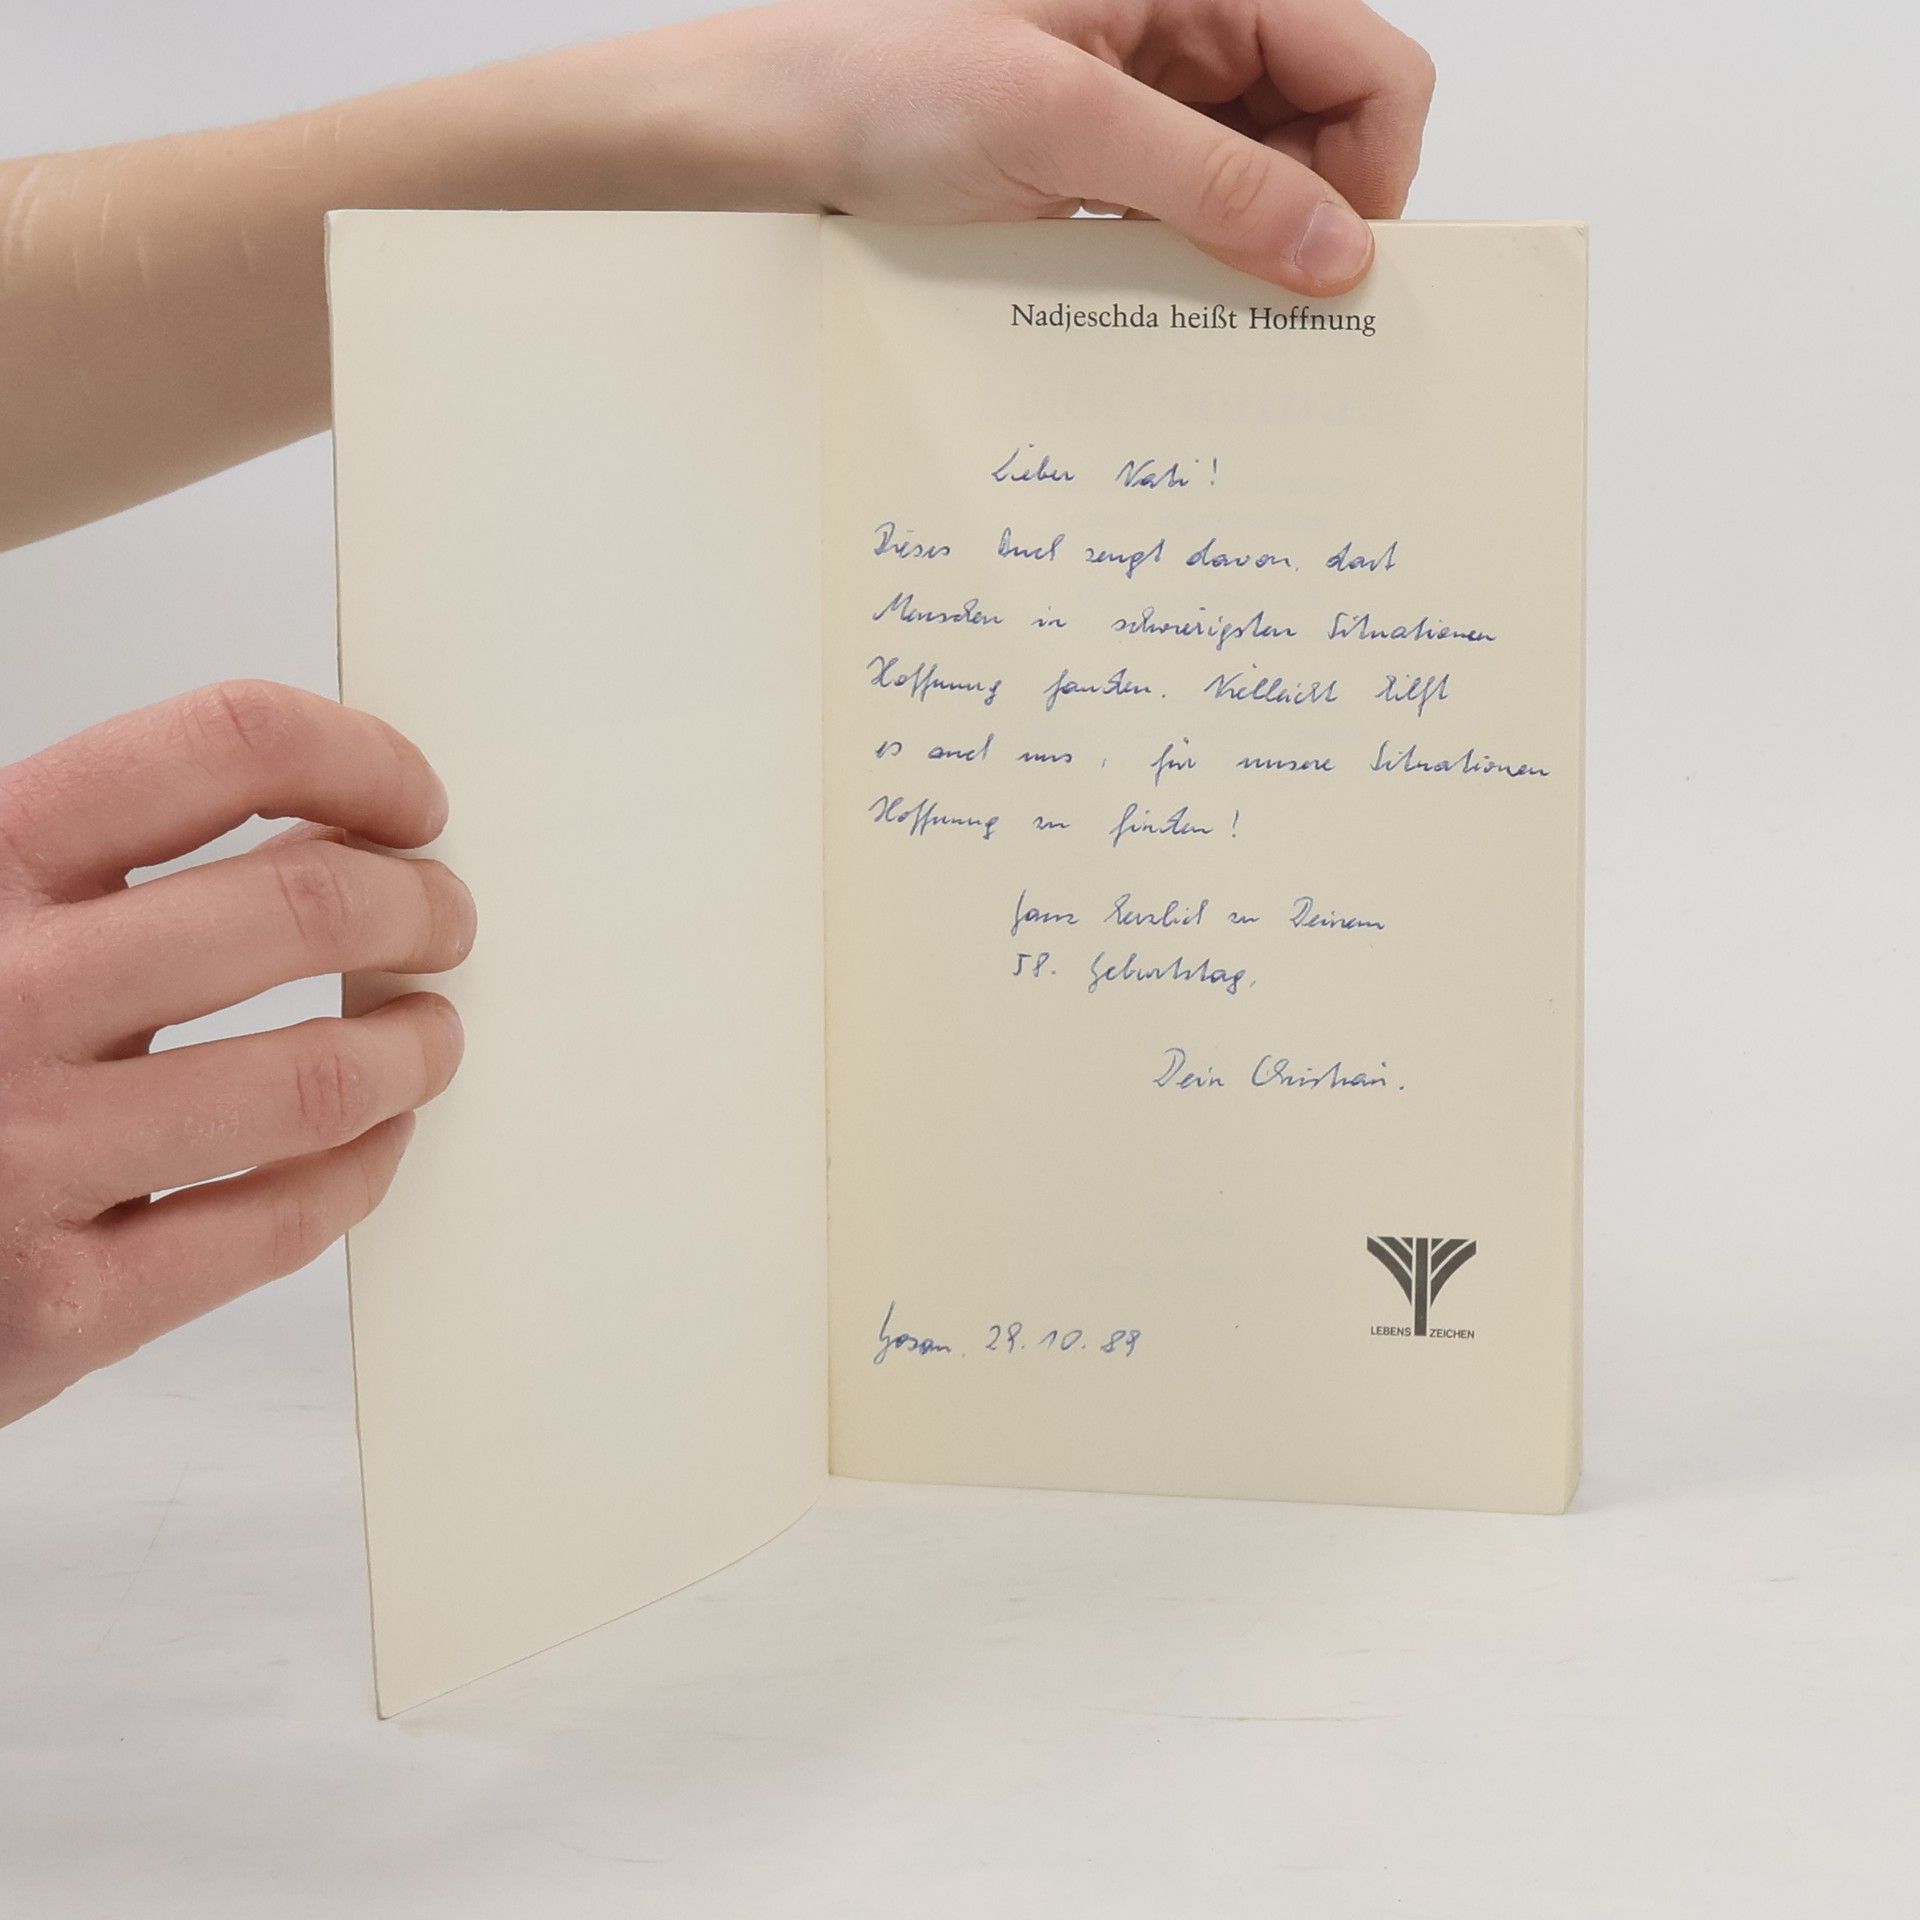 Nadjeschda heißt Hoffnung
Lieber Vati!
Dieses Buch zeugt davon, daß
Menschen in schwierigsten Situationen
Hoffnung fanden. Vielleicht hilft
es auch uns, für unsere Situationen
Hoffnung zu finden!
Ganz herzlich zu Deinem
58. Geburtstag,
Dein Christian.
LEBENS ZEICHEN
29.10.89